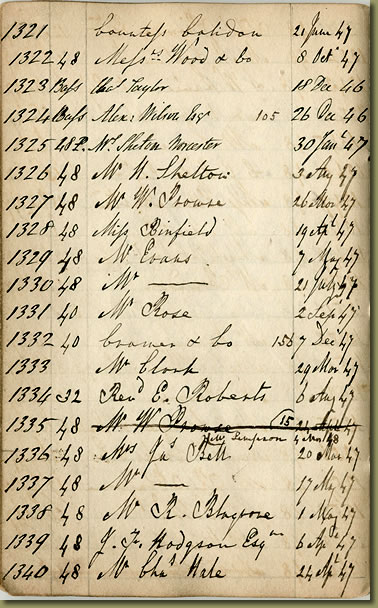 1321 Countess Caledon 21 June 47
1322 48 Messrs Wood & Co 8 Oct 47
1323 Bass Chas Taylor 18 Dec 46
1324 Bass Alexr Wilson Esqr 105 26 Dec 46
1325 48 P. Mr Skelton Worcester 30 Jany 47
1326 48 Mr H. Shelton 3 Aug 47
1327 48 Mr W. Prowse 26 Mar 47
1328 48 Miss Binfield 19 Apl 47
1329 48 Mr Evans 7 May 47
1330 48 Mr — 21 July 47
1331 40 Mr Rose 2 Sep 47
1332 40 Cramer & Co 156 7 Dec 47
1333 Mr Clark 29 Mar 47
1334 32 Revd E. Roberts 6 Aug 47
1335 48 Mr W Prowse 15 47
Simpson 4 48
1336 48 Mrs Jas Bell 20 Mar 47
1337 48 Mr — 17 My 47
1338 48 Mr R. Blagrove 1 May 47
1339 48 J. F. Hodgson Esqre 6 Apl 47
1340 48 Mr Chas Hale 24 Apl 47